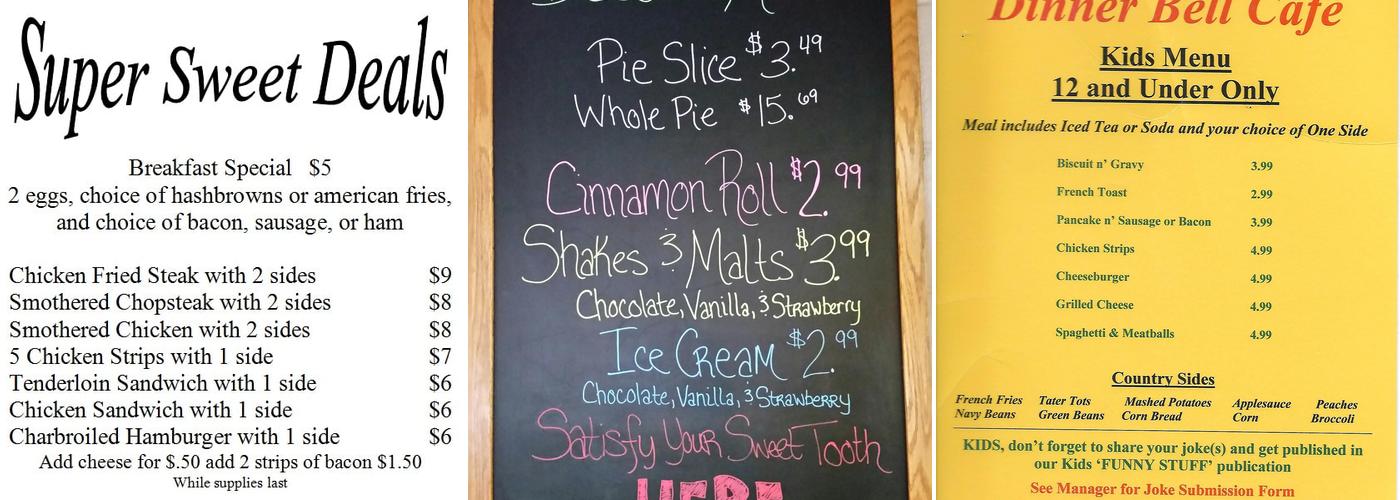 Super Sweet Deals
Breakfast Special $5
2 eggs, choice of hashbrowns or american fries,
and choice of bacon, sausage, or ham
Chicken Fried Steak with 2 sides $9
Smothered Chopsteak with 2 sides $8
Smothered Chicken with 2 sides $8
5 Chicken Strips with 1 side $7
Tenderloin Sandwich with 1 side $6
Chicken Sandwich with 1 side $6
Charbroiled Hamburger with 1 side $6
Add cheese for $.50 add 2 strips of bacon $1.50
While supplies last
Pie Slice $3.49
Whole Pie $15.69
Cinnamon Roll $2.99
Shakes & Malts $3.99
Chocolate, Vanilla, & Strawberry
Ice Cream $2.99
Chocolate, Vanilla, & Strawberry
Satisfy Your Sweet Tooth
HERE
Dinner Bell Cafe
Kids Menu
12 and Under Only
Meal includes Iced Tea or Soda and your choice of One Side
Biscuit n' Gravy 3.99
French Toast 2.99
Pancake n' Sausage or Bacon 3.99
Chicken Strips 4.99
Cheeseburger 4.99
Grilled Cheese 4.99
Spaghetti & Meatballs 4.99
Country Sides
French Fries Tater Tots Mashed Potatoes Applesauce Peaches
Navy Beans Green Beans Corn Bread Corn Broccoli
KIDS, don't forget to share your joke(s) and get published in
our Kids 'FUNNY STUFF' publication
See Manager for Joke Submission Form